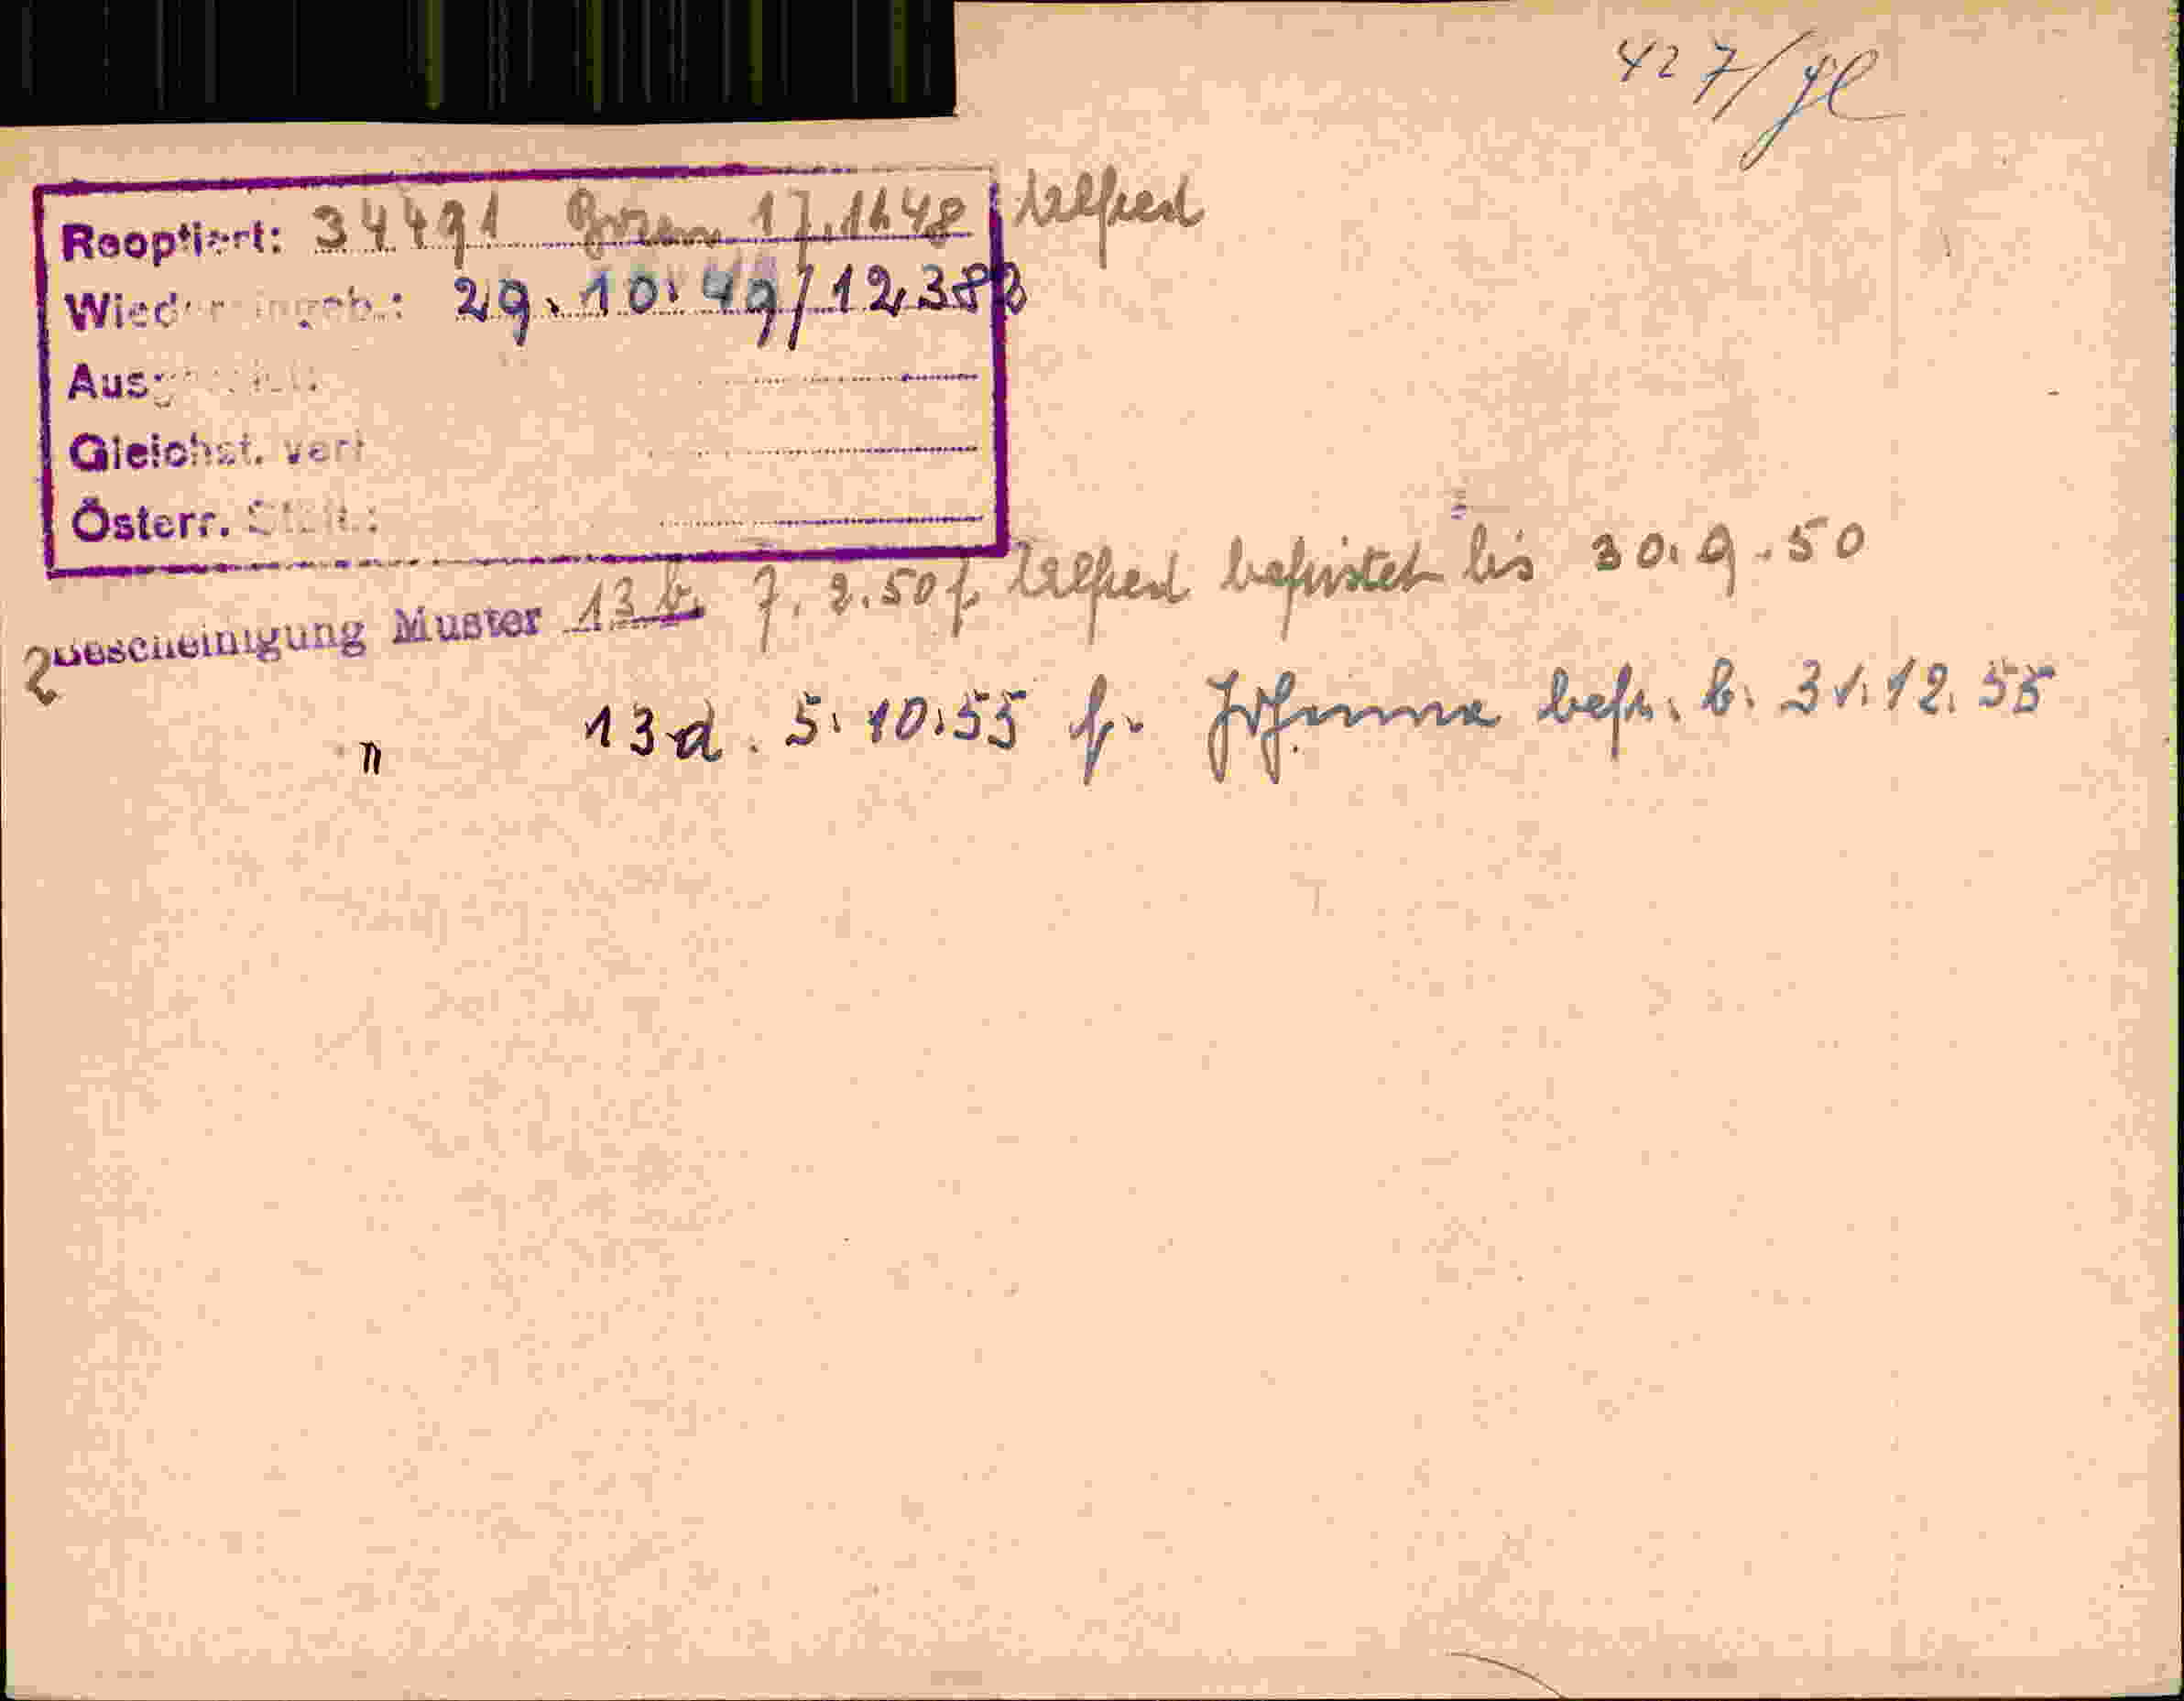 427/
Reoptiert: 34491 Bozen 17.12.48 Alfred
Wiedereingeb.: 29.10.49/12383
Gleichst. verl
Österr. Stzlt.:
Bescheinigung Muster 13b. 7.2.50 f. Alfred befristet bis 30.9.50
" 13 d. 5.10.55 f. Johanna befr. b. 31.12.55